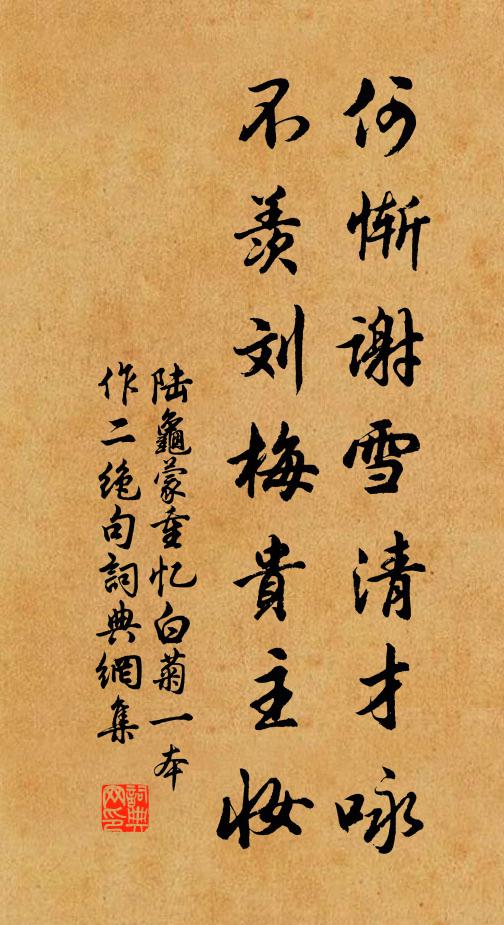 何惭谢雪清才咏
不羡刘梅貴主妆
陆龜蒙重忆白菊一本
作二绝句詞典網集
詞典网印